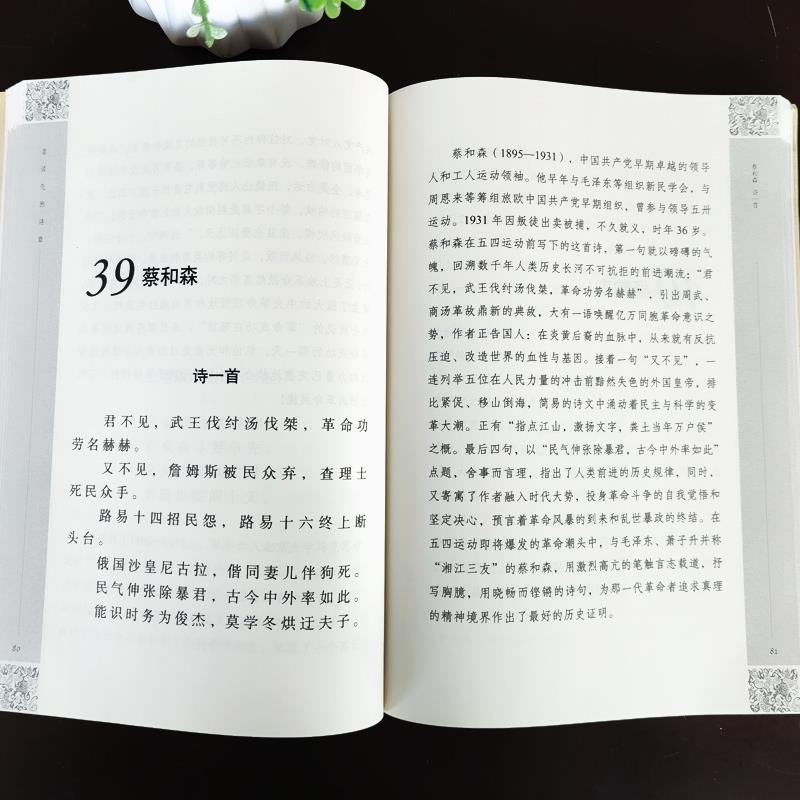 重读先烈诗章
39 蔡和森
诗一首
君不见，武王伐纣汤伐桀，革命功
劳名赫赫。
又不见，詹姆斯被民众弃，查理士
死民众手。
路易十四招民怨，路易十六终上断
头台。
俄国沙皇尼古拉，偕同妻儿伴狗死。
民气伸张除暴君，古今中外率如此。
能识时务为俊杰，莫学冬烘迂夫子。
80
蔡和森 诗一首
蔡和森（1895—1931），中国共产党早期卓越的领导
人和工人运动领袖。他早年与毛泽东等组织新民学会，与
周恩来等筹组旅欧中国共产党早期组织，曾参与领导五卅
运动。1931 年因叛徒出卖被捕，不久就义，时年 36 岁。
蔡和森在五四运动前写下的这首诗，第一句就以磅礴的气
魄，回溯数千年人类历史长河不可抗拒的前进潮流：“君
不见，武王伐纣汤伐桀，革命功劳名赫赫”，引出周武、
商汤革故鼎新的典故，大有一语唤醒亿万同胞革命意识之
势，作者正告国人：在炎黄后裔的血脉中，从来就有反抗
压迫、改造世界的血性与基因。接着一句“又不见”，一
连列举五位在人民力量的冲击前黯然失色的外国皇帝，排
比紧促、移山倒海，简易的诗文中涌动着民主与科学的变
革大潮。正有“指点江山，激扬文字，粪土当年万户侯”
之概。最后四句，以“民气伸张除暴君，古今中外率如此”
点题，舍事而言理，指出了人类前进的历史规律，同时，
又寄寓了作者融入时代大势，投身革命斗争的自我觉悟和
坚定决心，预言着革命风暴的到来和乱世暴政的终结。在
五四运动即将爆发的革命潮头中，与毛泽东、萧子升并称
“湘江三友”的蔡和森，用激烈高亢的笔触言志载道，抒
写胸臆，用晓畅而铿锵的诗句，为那一代革命者追求真理
的精神境界作出了最好的历史证明。
81